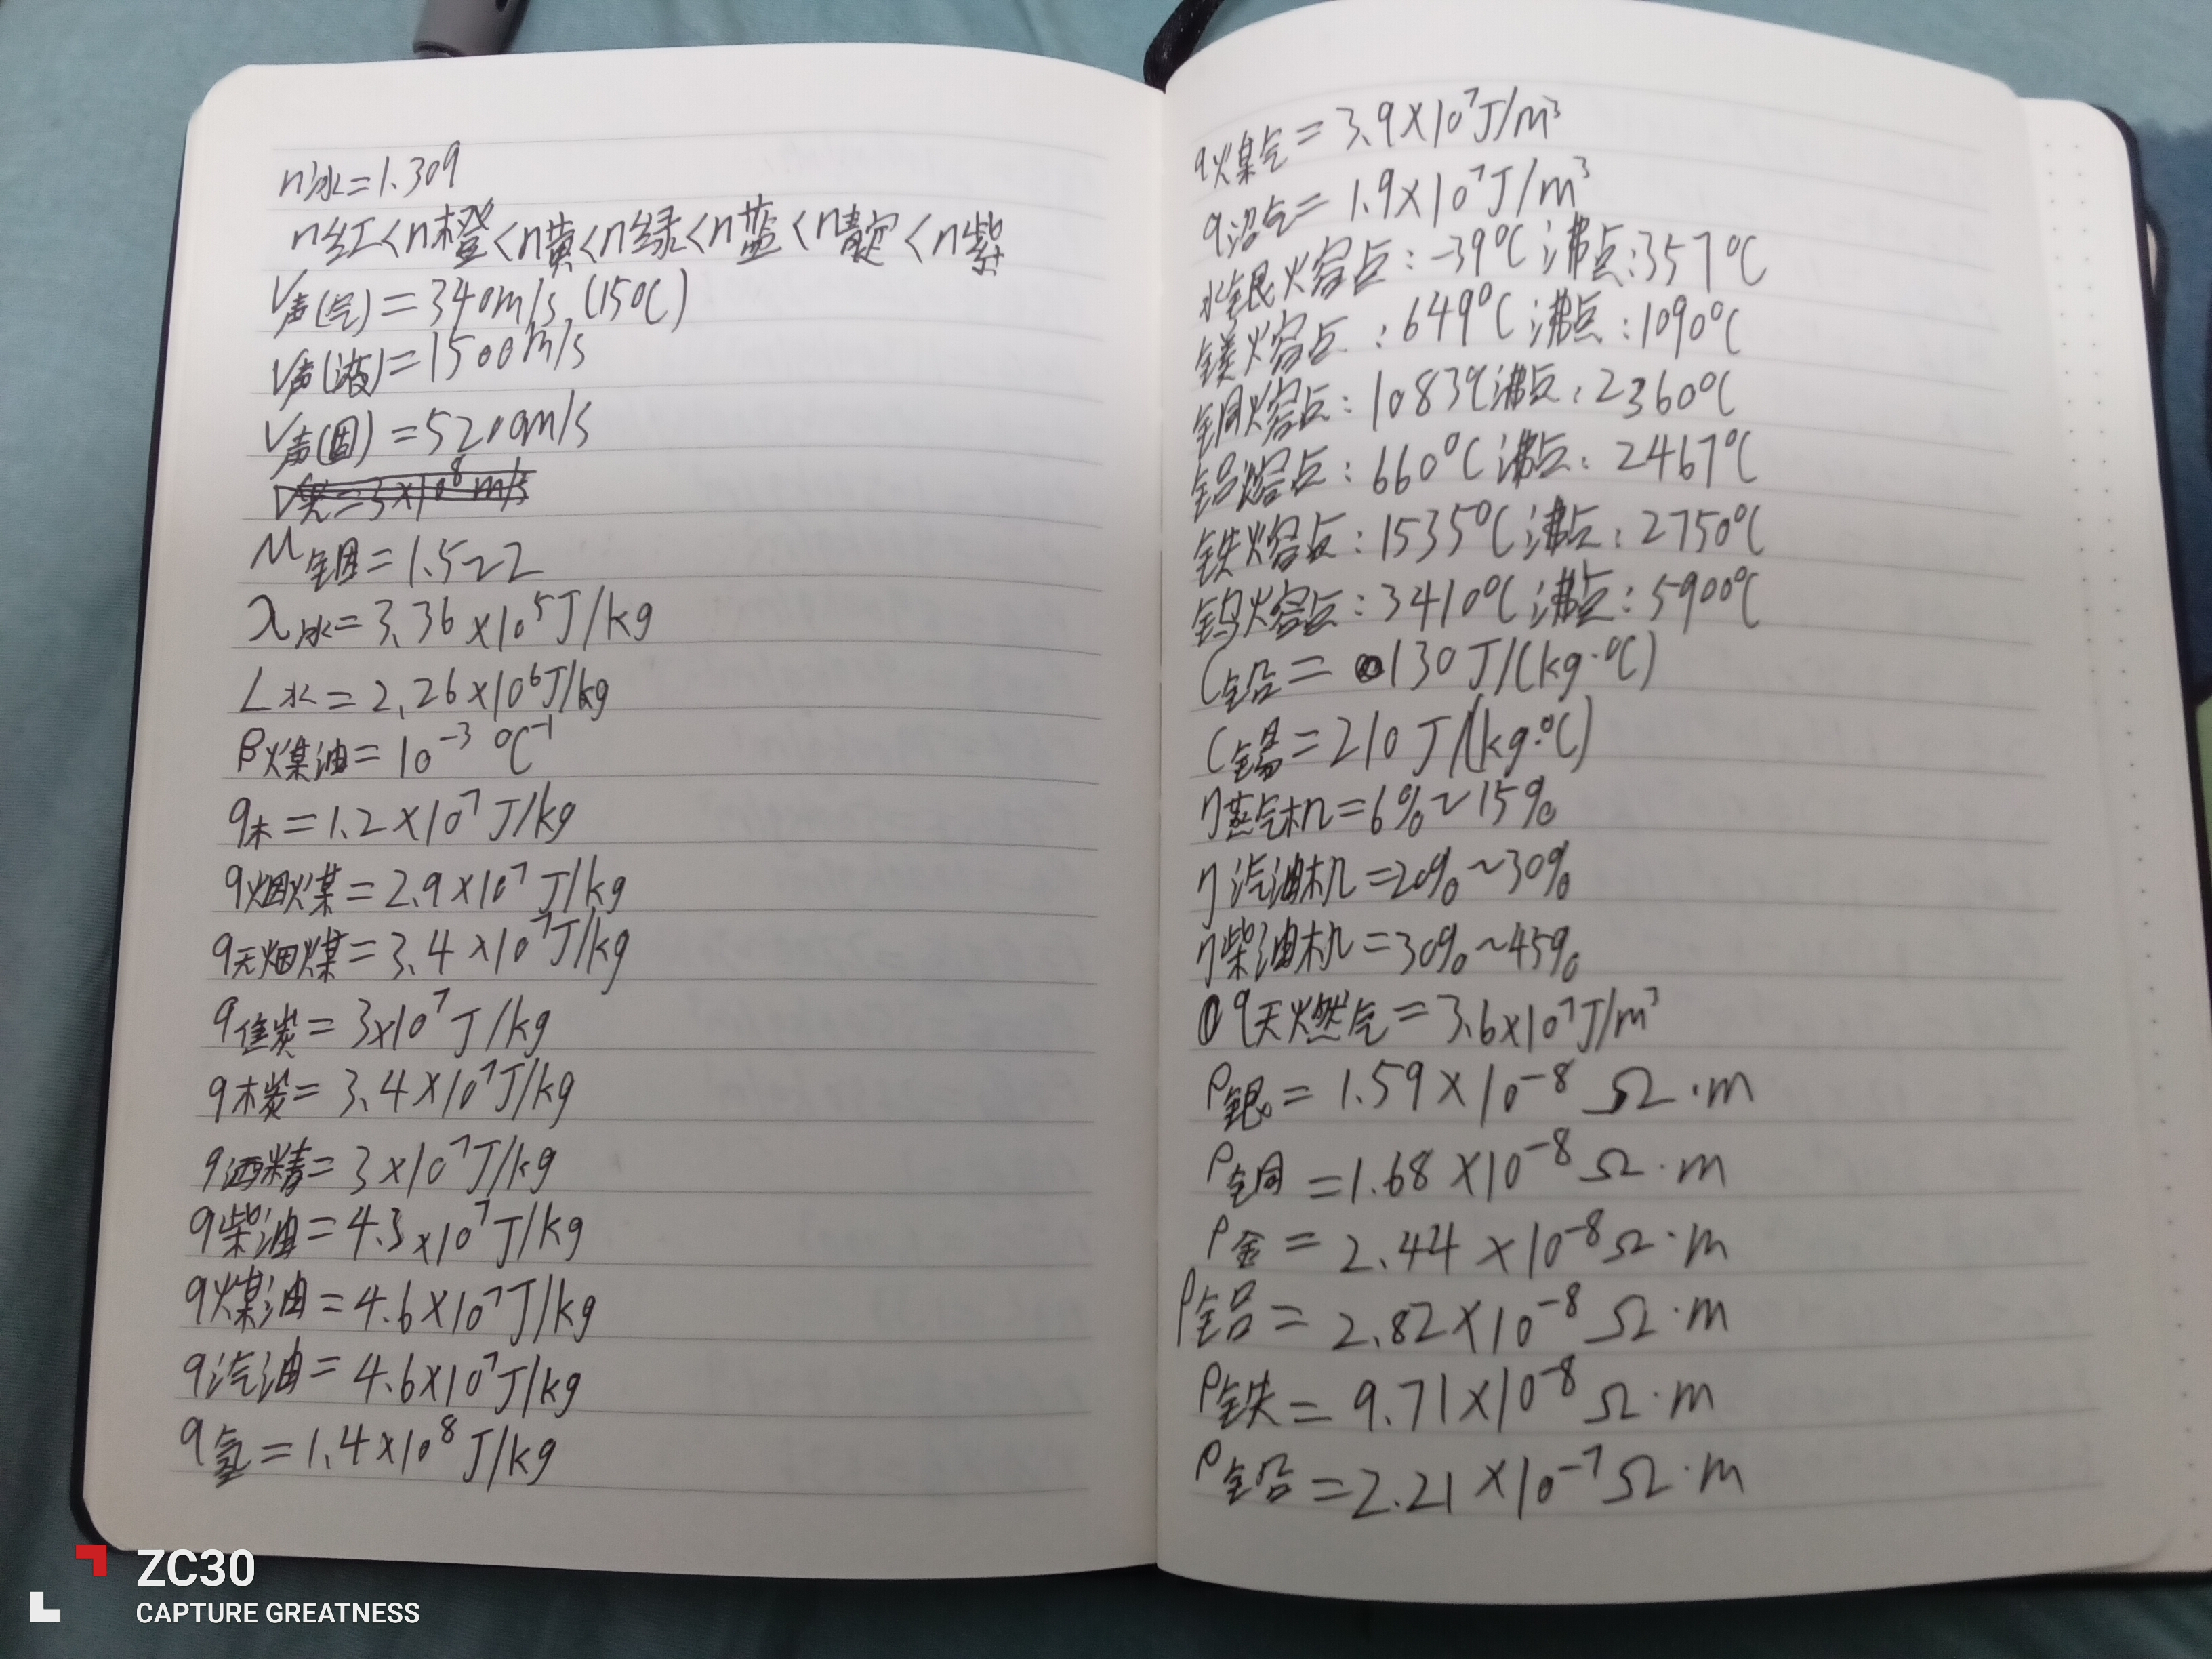 n冰=1.309
n红<n橙<n黄<n绿<n蓝<n靛<n紫
V声(气)=340m/s (15℃)
V声(液)=1500m/s
V声(固)=5200m/s
V光=3×10⁸m/s
λ冰=3.36×10⁵J/kg
L水=2.26×10⁶J/kg
β煤油=10⁻³ ℃⁻¹
q木=1.2×10⁷J/kg
q烟煤=2.9×10⁷J/kg
q无烟煤=3.4×10⁷J/kg
q焦炭=3×10⁷J/kg
q木炭=3.4×10⁷J/kg
q酒精=3×10⁷J/kg
q柴油=4.3×10⁷J/kg
q煤油=4.6×10⁷J/kg
q汽油=4.6×10⁷J/kg
q氢=1.4×10⁸J/kg
q煤气=3.9×10⁷J/m³
q沼气=1.9×10⁷J/m³
水银熔点:-39℃ 沸点:357℃
镁熔点:649℃ 沸点:1090℃
铜熔点:1083℃ 沸点:2360℃
铝熔点:660℃ 沸点:2467℃
铁熔点:1535℃ 沸点:2750℃
钨熔点:3410℃ 沸点:5900℃
C铅=130J/(kg·℃)
C锡=210J/(kg·℃)
η蒸气机=6%~15%
η汽油机=20%~30%
η柴油机=30%~45%
q天燃气=3.6×10⁷J/m³
ρ银=1.59×10⁻⁸Ω·m
ρ铜=1.68×10⁻⁸Ω·m
ρ金=2.44×10⁻⁸Ω·m
ρ铝=2.82×10⁻⁸Ω·m
ρ铁=9.71×10⁻⁸Ω·m
ρ铅=2.21×10⁻⁷Ω·m
ZC30
CAPTURE GREATNESS